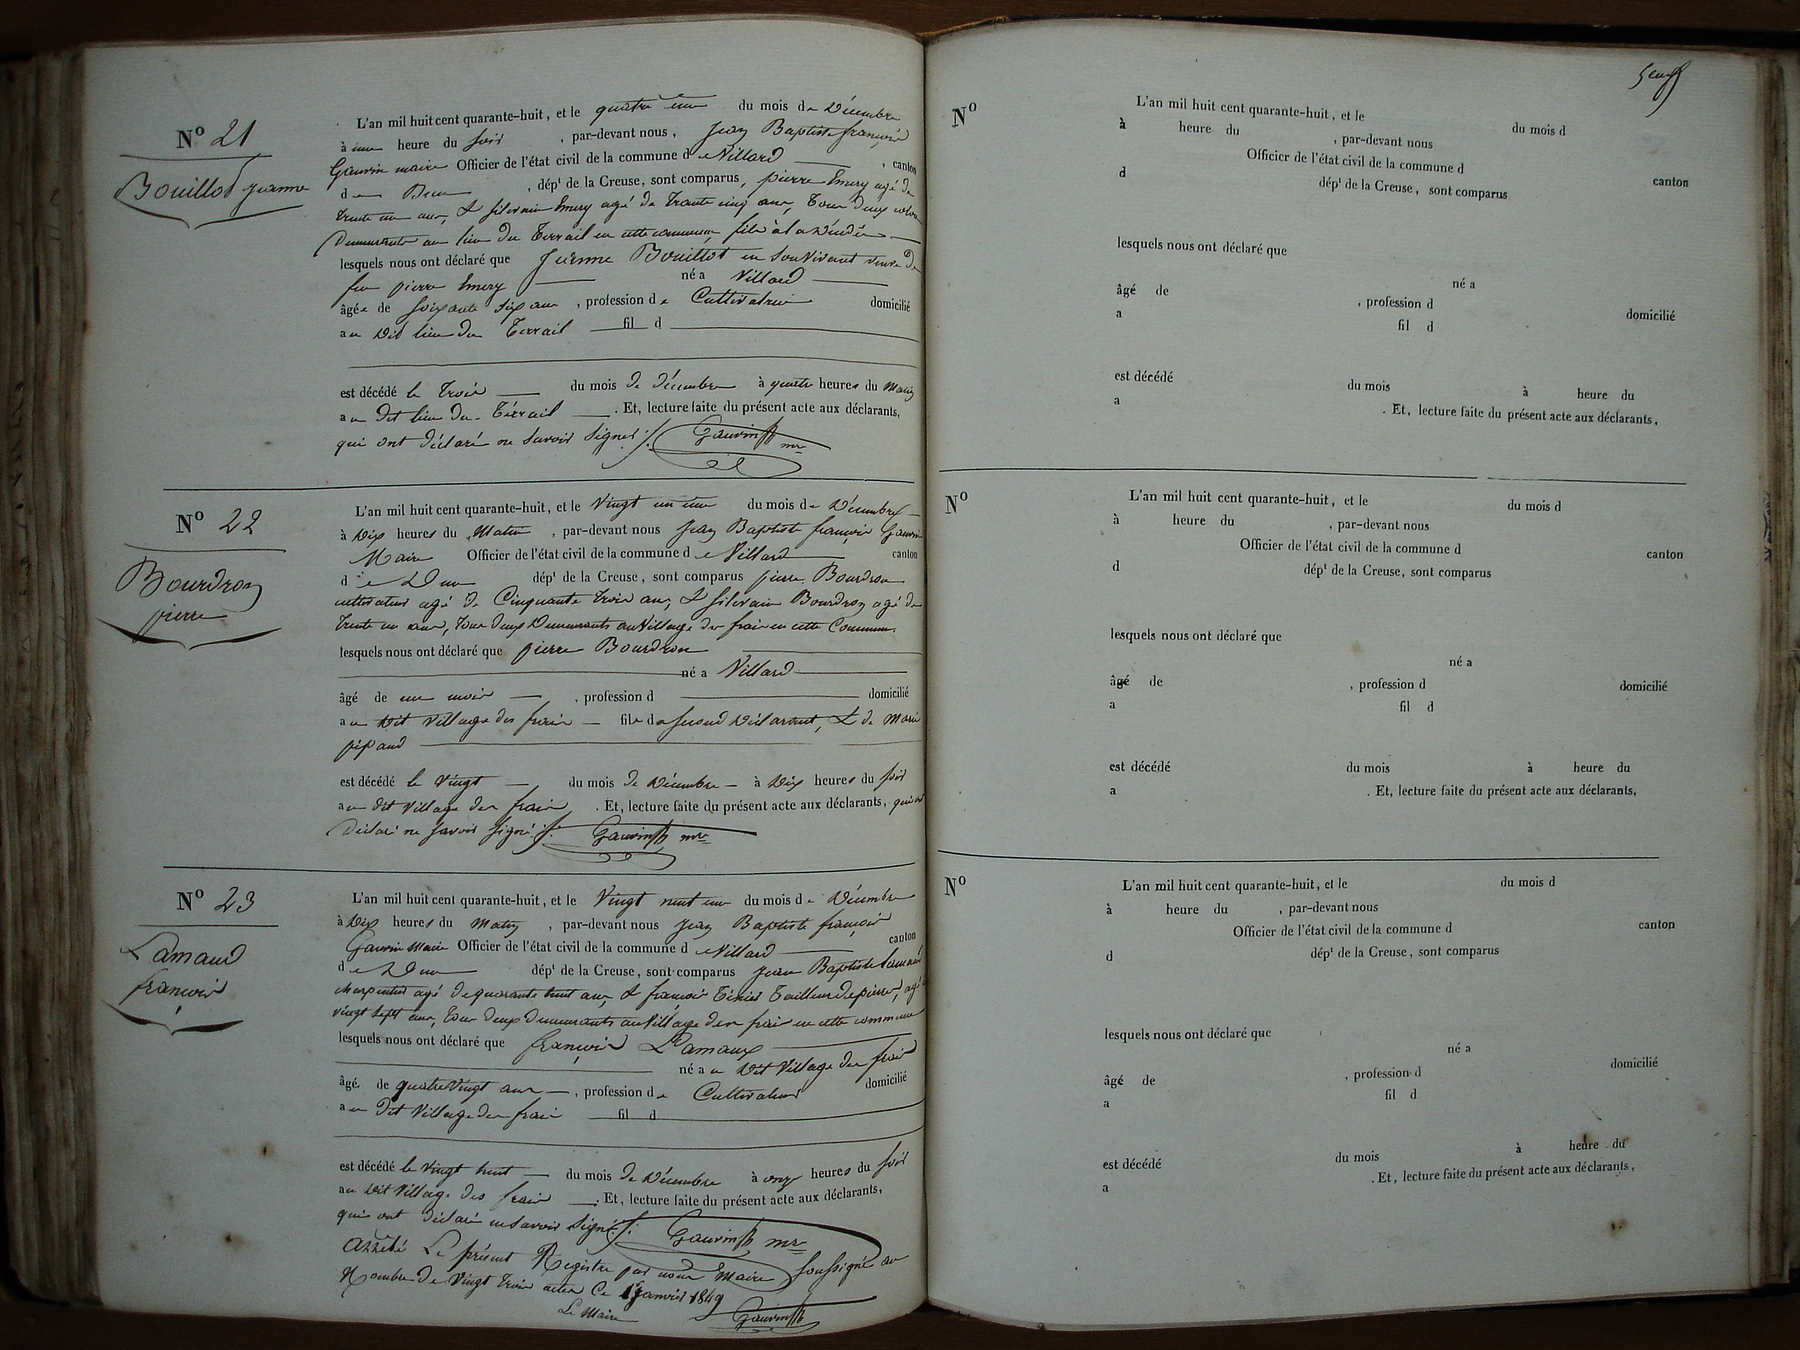 N° 21
Bouillot jeanne
L'an mil huit cent quarante-huit, et le quatrième du mois de Décembre
à une heure du soir, par-devant nous, Jean Baptiste françois
Gauvin maire Officier de l'état civil de la commune de Villard, canton
de Dun, dépt de la Creuse, sont comparus, pierre Emery agé de
trente un ans, & silvain Emery agé de trante cinq ans, tous deux colons
Demeurants au lieu du Terrail en cette commune, fils à la décédée
lesquels nous ont déclaré que Jeanne Bouillot en son Vivant veuve de
feu pierre Emery né a Villard
âgée de soixante six ans, profession de Cultivatrice domicilié
au Dit lieu du Terrail fil d
est décédé le trois du mois de décembre à quatre heures du Matin
au dit lieu du Terrail. Et, lecture faite du présent acte aux déclarants,
qui ont déclaré ne savoir signer ./. Gauvin mre
N° 22
Bourdron
pierre
L'an mil huit cent quarante-huit, et le Vingt unième du mois de Décembre
à Dix heures du Matin, par-devant nous Jean Baptiste françois Gauvin
Maire Officier de l'état civil de la commune de Villard canton
de Dun dépt de la Creuse, sont comparus pierre Bourdron
cultivateur agé de Cinquante trois ans, & silvain Bourdron agé de
trente un ans, tous deux Demeurants au Village des frais en cette Commune
lesquels nous ont déclaré que pierre Bourdron
né a Villard
âgé de un mois, profession d domicilié
au Dit Village des frais fils de second Déclarant, & de Marie
pipaud
est décédé le Vingt du mois de Décembre à Dix heures du soir
au dit Village des frais. Et, lecture faite du présent acte aux déclarants, qui ont
Déclaré ne savoir signé ./. Gauvin mre
N° 23
Lamaud
françois
L'an mil huit cent quarante-huit, et le Vingt neuvième du mois de Décembre
à Dix heures du Matin, par-devant nous Jean Baptiste françois
Gauvin Maire Officier de l'état civil de la commune de Villard canton
de Dun dépt de la Creuse, sont comparus Jean Baptiste Lamaud
charpentier agé de quarante huit ans, & françois Ténier tailleur de pierres, agé
vingt sept ans, tous deux Demeurants au Village des frais en cette commune
lesquels nous ont déclaré que françois Lamaux
né a u Dit Village des frais
âgé de quatre Vingt ans, profession de Cultivateur domicilié
au Dit Village des frais fil d
est décédé le Vingt huit du mois de Décembre à onze heures du soir
au Dit Village des frais. Et, lecture faite du présent acte aux déclarants,
qui ont déclaré ne savoir signé ./. Gauvin mre
Arrêté Le présent Registre par nous Maire soussigné au
Nombre de Vingt trois actes Ce 1er janvier 1849
Le Maire Gauvin
N°
L'an mil huit cent quarante-huit, et le du mois d
à heure du, par-devant nous
Officier de l'état civil de la commune d canton
d dépt de la Creuse, sont comparus
lesquels nous ont déclaré que
né a
âgé de, profession d domicilié
a fil d
est décédé du mois à heure du
a. Et, lecture faite du présent acte aux déclarants,
N°
L'an mil huit cent quarante-huit, et le du mois d
à heure du, par-devant nous
Officier de l'état civil de la commune d canton
d dépt de la Creuse, sont comparus
lesquels nous ont déclaré que
né a
âgé de, profession d domicilié
a fil d
est décédé du mois à heure du
a. Et, lecture faite du présent acte aux déclarants,
N°
L'an mil huit cent quarante-huit, et le du mois d
à heure du, par-devant nous
Officier de l'état civil de la commune d canton
d dépt de la Creuse, sont comparus
lesquels nous ont déclaré que
né a
âgé de, profession d domicilié
a fil d
est décédé du mois à heure du
a. Et, lecture faite du présent acte aux déclarants,